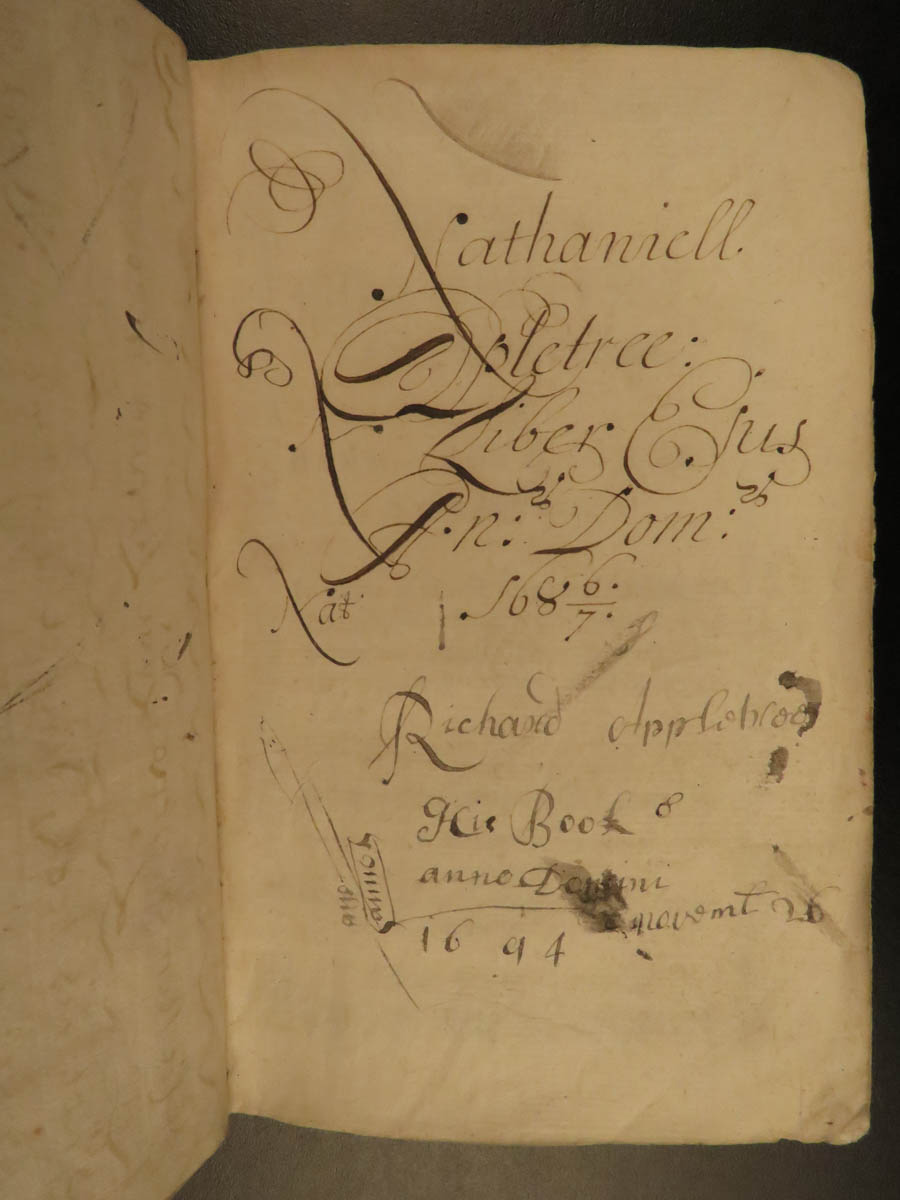 Nathaniell.
Apletree:
Liber Ejus
An: Dom:
168 6/7:
Nat
Richard Appletree
His Book
anno Domini
1694 Novemt 26